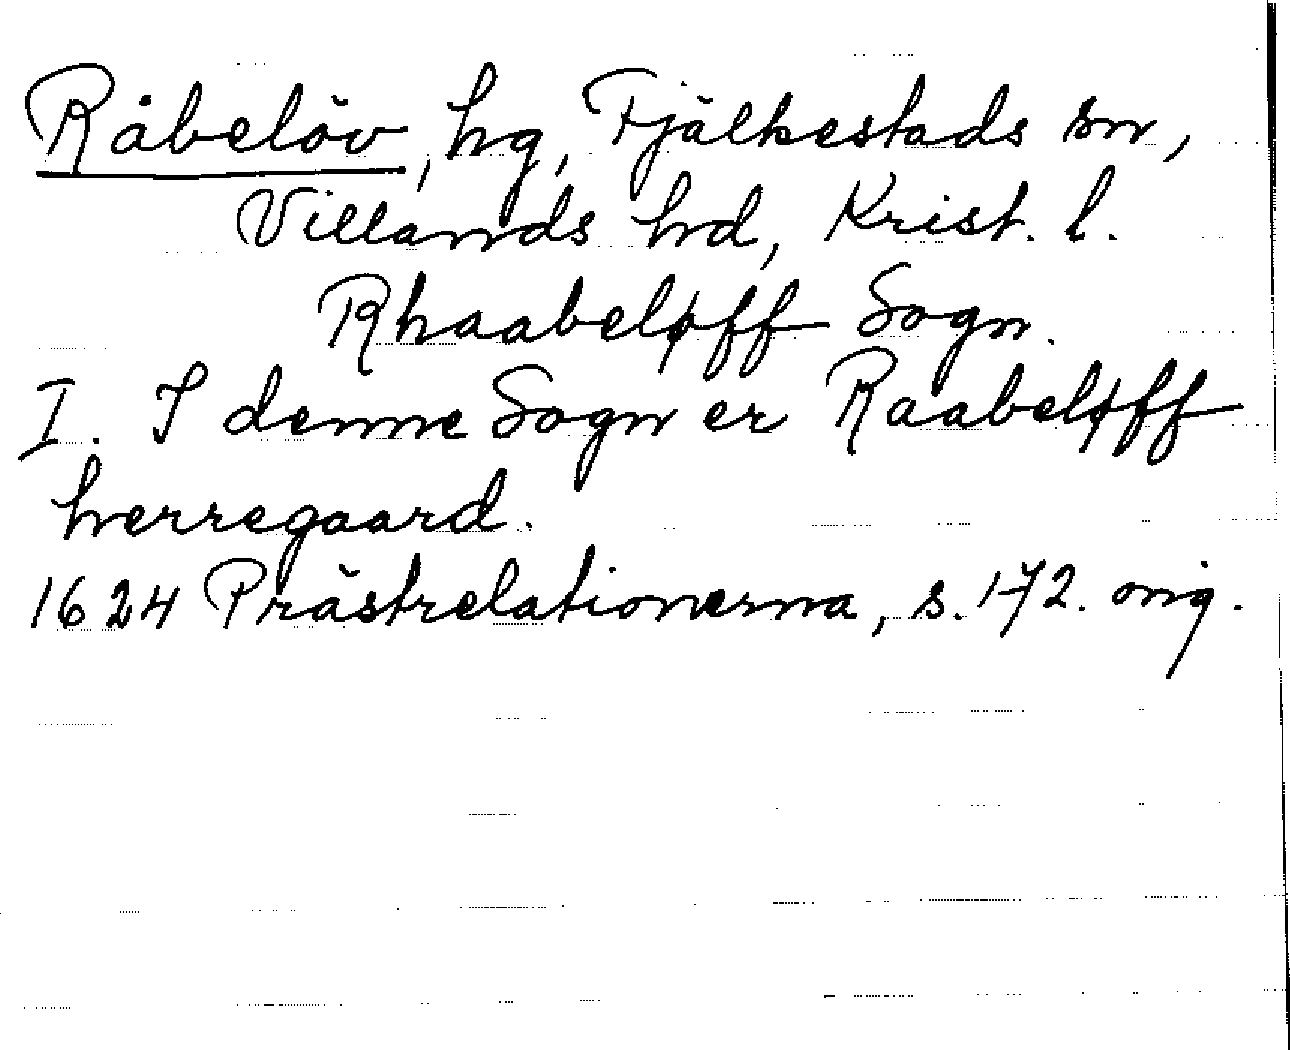 Råbelöv, hg, Fjälkestads sn,
Villands hd, Krist. l.
Rhaabeløff Sogn.
I. I denne Sogn er Raabeløff
herregaard.
1624 Prästrelationerna, s. 172. orig.